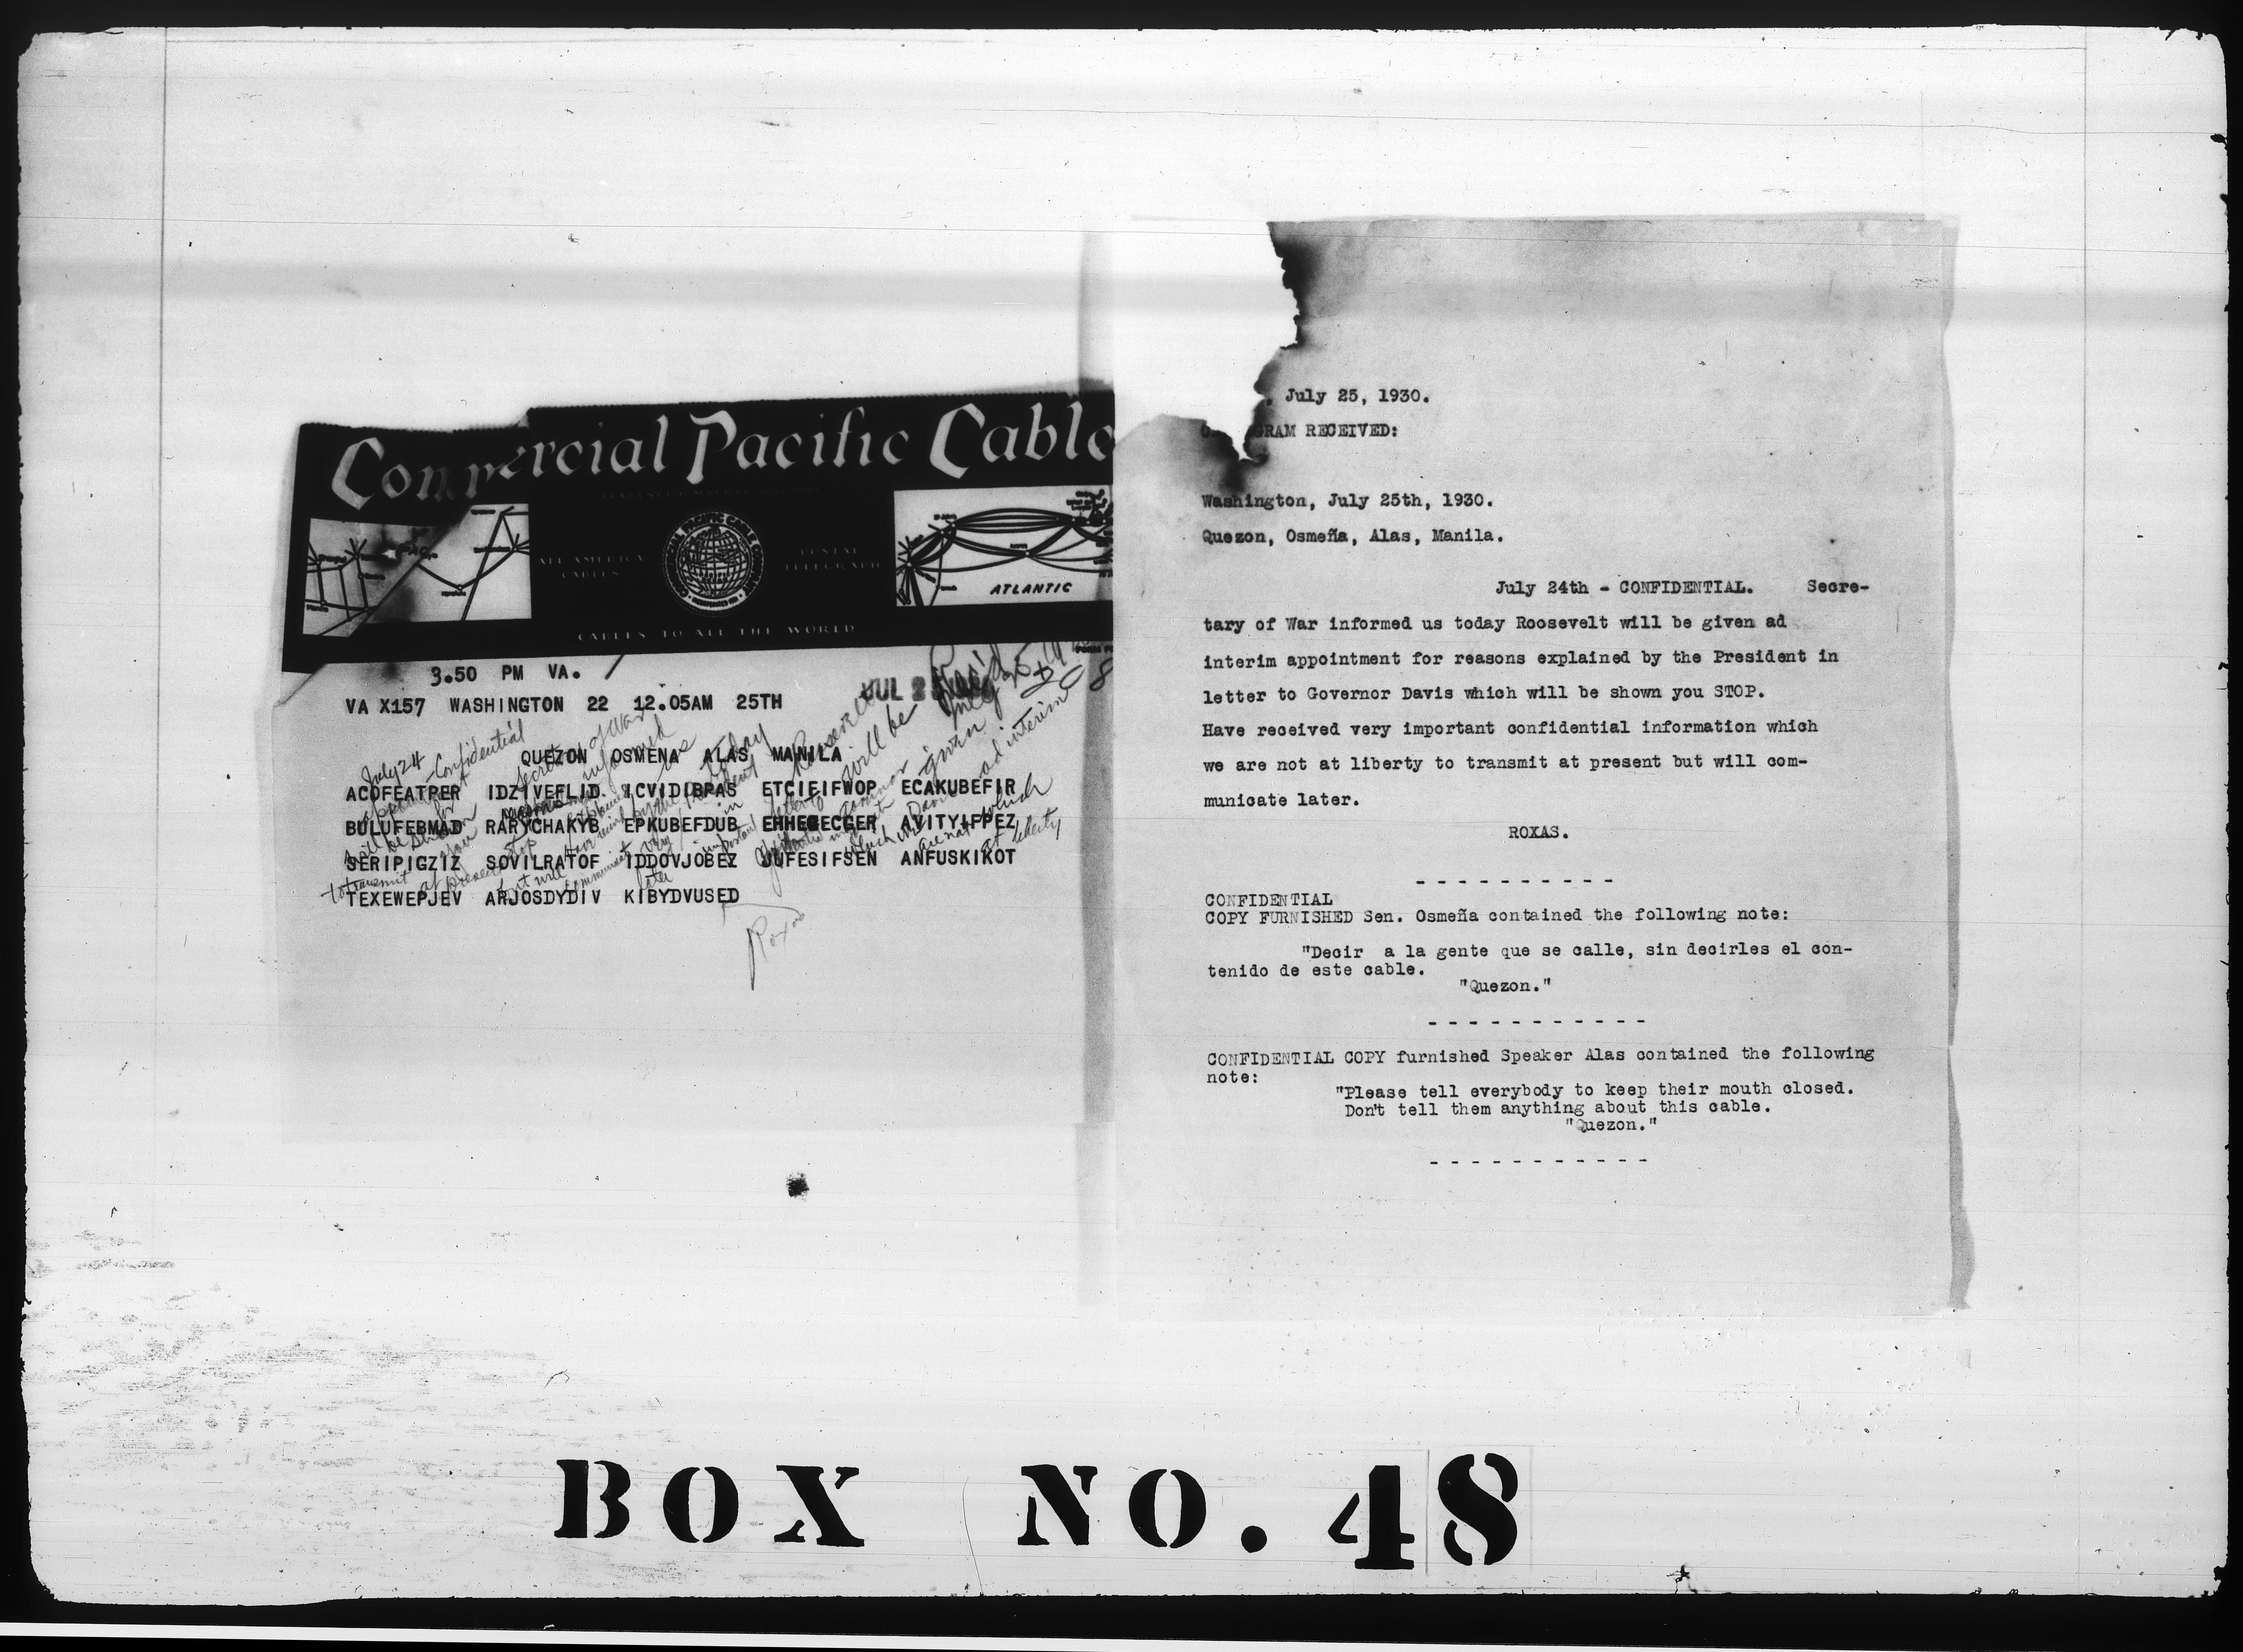 Commercial Pacific Cable
ALL AMERICA CABLES
POSTAL TELEGRAPH
ATLANTIC
CABLES TO ALL THE WORLD
3.50 PM VA.
JUL
VA X157 WASHINGTON 22 12.05AM 25TH
QUEZON OSMENA ALAS MANILA
ACOFEATPER IDZIVEFLID ICVIDIBPAS ETCIEIFWOP ECAKUBEFIR
BULUFEBMAD RARYCHAKYB EPKUBEFDUB EHHEGECGER AVITYIFPEZ
SERIPIGZIZ SOVILRATOF IDDOVJOBEZ JUFESIFSEN ANFUSKIKOT
TEXEWEPJEV ARJOSDYDIV KIBYDVUSED
July 24 - Confidential
Secretary of War informed us today Roosevelt will be given ad interim
appointment for reasons explained by the President in letter to Governor Davis which
will be shown you stop Have very important which we are not at liberty
to transmit at present but will communicate later
Roxas
, July 25, 1930.
GRAM RECEIVED:
Washington, July 25th, 1930.
Quezon, Osmeña, Alas, Manila.
July 24th - CONFIDENTIAL. Secre-
tary of War informed us today Roosevelt will be given ad
interim appointment for reasons explained by the President in
letter to Governor Davis which will be shown you STOP.
Have received very important confidential information which
we are not at liberty to transmit at present but will com-
municate later.
ROXAS.
- - - - - - - - - -
CONFIDENTIAL
COPY FURNISHED Sen. Osmeña contained the following note:
"Decir a la gente que se calle, sin decirles el con-
tenido de este cable.
"Quezon."
- - - - - - - - - - -
CONFIDENTIAL COPY furnished Speaker Alas contained the following
note:
"Please tell everybody to keep their mouth closed.
Don't tell them anything about this cable.
"Quezon."
- - - - - - - - - - -
BOX NO. 48